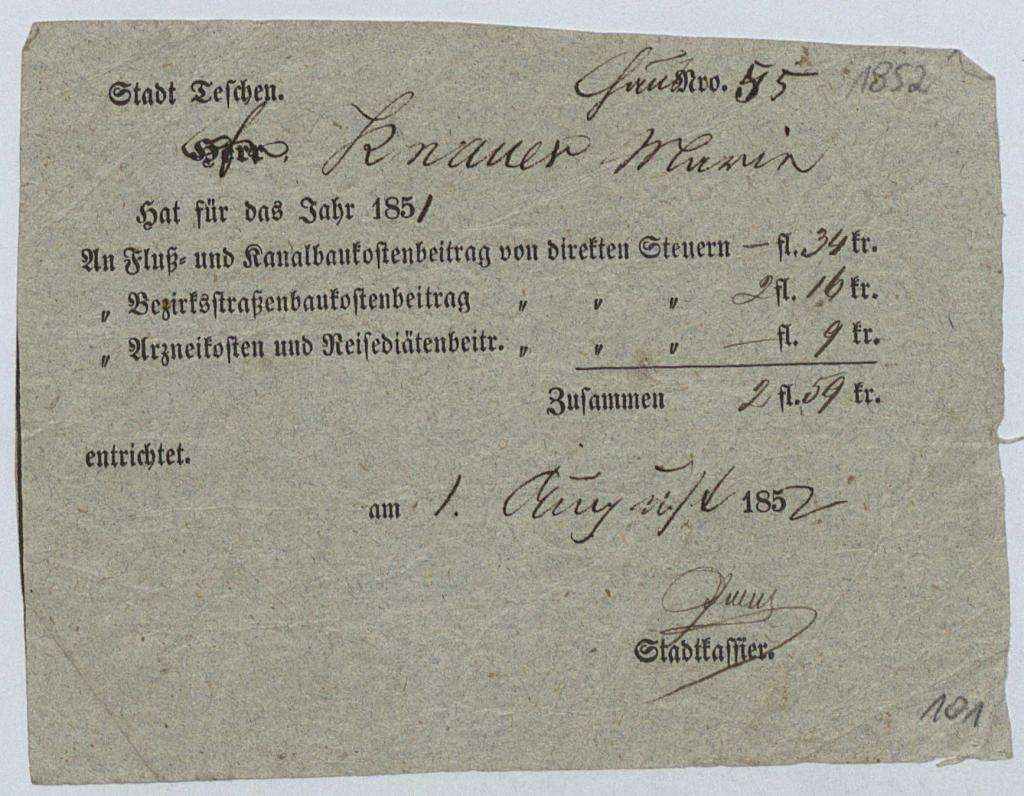 Stadt Teschen. Haus Nro. 55 1852
Herr Knauer Marie
Hat für das Jahr 1851
An Fluß- und Kanalbaukostenbeitrag von direkten Steuern — fl. 34 kr.
„ Bezirksstraßenbaukostenbeitrag „ „ „ 2 fl. 16 kr.
„ Arzneikosten und Reisediätenbeitr. „ „ „ — fl. 9 kr.
Zusammen 2 fl. 59 kr.
entrichtet.
am 1. August 1852
Stadtkassier.
101